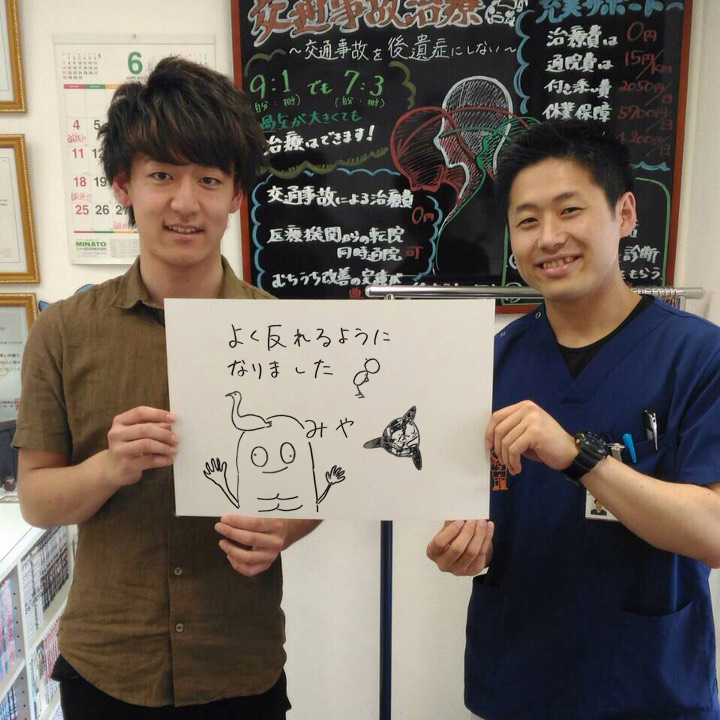 交通事故治療
～交通事故を後遺症にしない～
9:1 でも 7:3
過失が大きくても
治療はできます!
交通事故による治療費
0円
医療機関からの転院
同時通院 可
むちうち改善の実績
充実サポート
治療費は 0円
通院費は 15円/km
付き添い費 2050円/日
休業保障 5700円/日
4200円/日
診断
6
4
11 12
18 19
25 26 27
MINATO
よく反れるように
なりました
みや